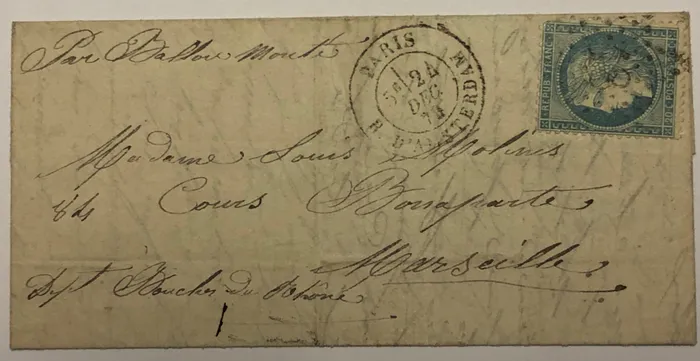 Par Ballon Monté
PARIS
R. D'AMSTERDAM
5E
24
DEC
REPUB. FRANC.
20 C. POSTES 20 C.
Madame Louis Molinis
Cours Bonaparte
Marseille
Dept Bouches du Rhône